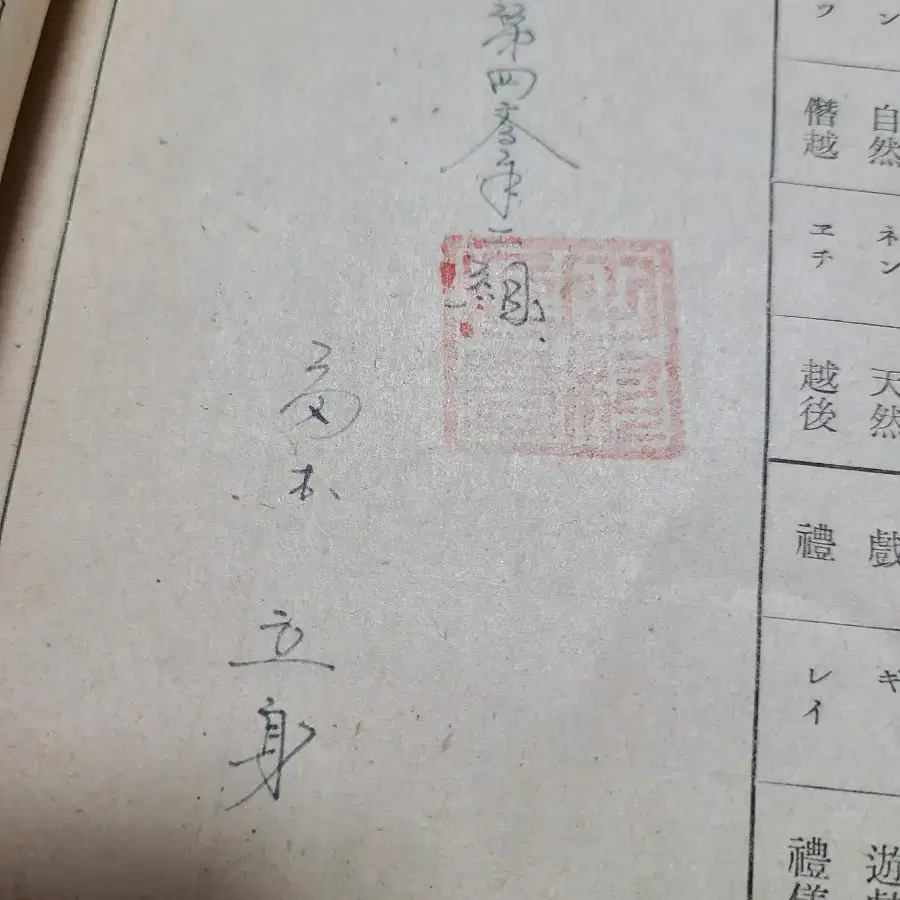 ン
自然
ネン
天然
戲
ギ
遊戲
ツ
僭越
ヱチ
越後
禮
レイ
禮儀
第四學年二組
木 立身